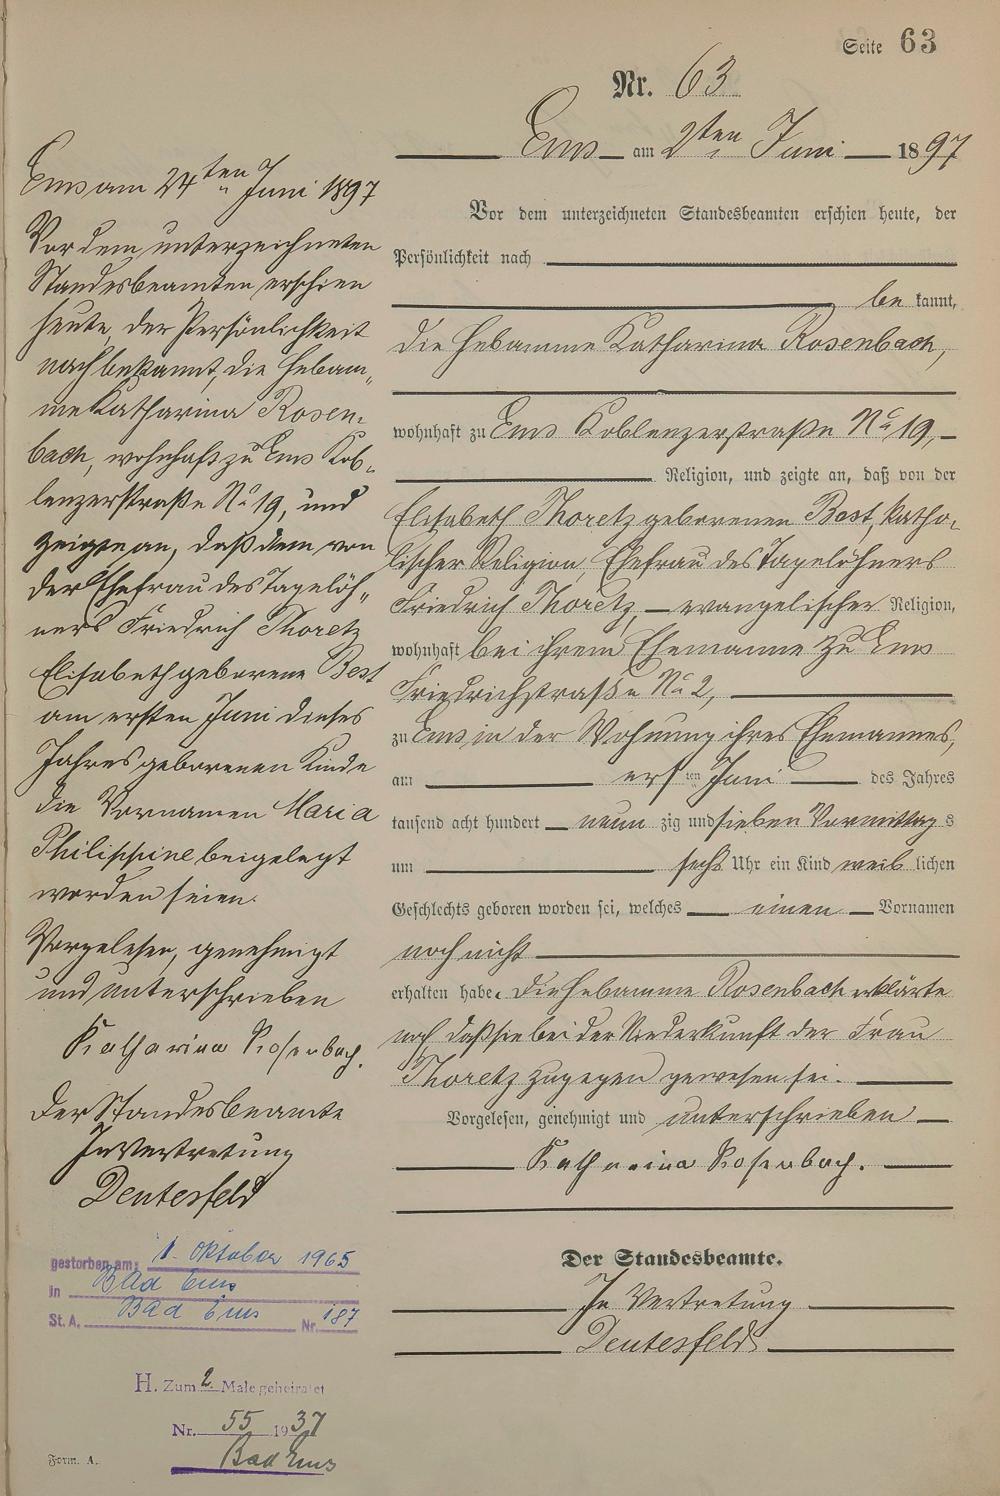 Seite 63
Nr. 63
Ems am 2ten Juni 1897
Vor dem unterzeichneten Standesbeamten erschien heute, der
Persönlichkeit nach
be kannt,
die Hebamme Katharina Rosenbach,
wohnhaft zu Ems Koblenzerstraße No 19,
Religion, und zeigte an, daß von der
Elisabeth Thoretz geborenen Best, katho-
lischer Religion, Ehefrau des Tagelöhners
Friedrich Thoretz, evangelischer Religion,
wohnhaft bei ihrem Ehemanne zu Ems
Friedrichstraße No 2,
zu Ems in der Wohnung ihres Ehemannes,
am ersten Juni des Jahres
tausend acht hundert neun zig und sieben Vormittags
um sechs Uhr ein Kind weiblichen
Geschlechts geboren worden sei, welches einen Vornamen
noch nicht
erhalten habe. Die Hebamme Rosenbach erklärte
noch daß sie bei der Niederkunft der Frau
Thoretz zugegen gewesen sei.
Vorgelesen, genehmigt und unterschrieben
Katharina Rosenbach.
Der Standesbeamte.
In Vertretung
Deutesfeld
Ems am 24ten Juni 1897
Vor dem unterzeichneten
Standesbeamten erschien
heute, der Persönlichkeit
nach bekannt, die Hebam-
me Katharina Rosen-
bach, wohnhaft zu Ems Kob-
lenzerstraße No 19, und
zeigte an, daß dem von
der Ehefrau des Tagelöh-
ners Friedrich Thoretz
Elisabeth geborene Best
am ersten Juni dieses
Jahres geborenen Kinde
die Vornamen Maria
Philippine beigelegt
worden seien.
Vorgelesen, genehmigt
und unterschrieben
Katharina Rosenbach.
Der Standesbeamte
In Vertretung
Deutesfeld
gestorben am: 1. Oktober 1965
in Bad Ems
St. A. Bad Ems Nr. 187
H. Zum 2. Male geheiratet
Nr. 55 1937
Bad Ems
Form. A.